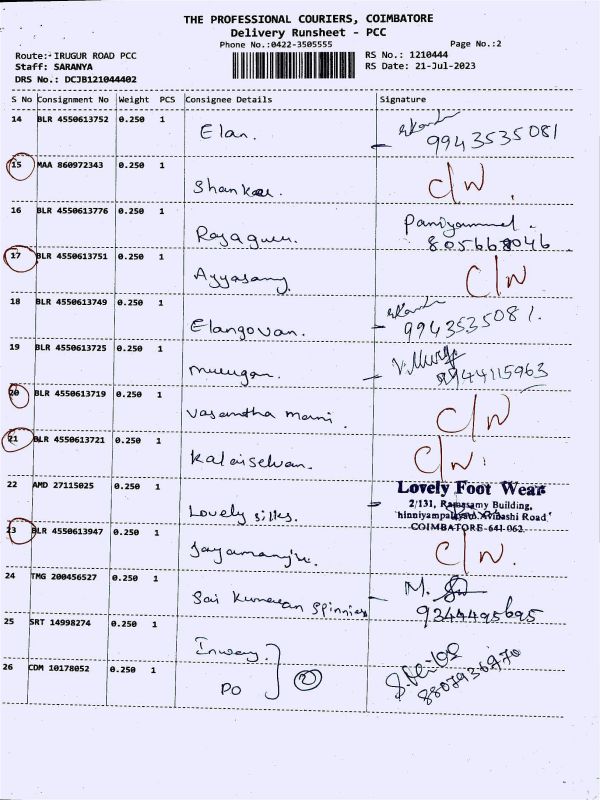 THE PROFESSIONAL COURIERS, COIMBATORE
Delivery Runsheet - PCC
Phone No.:0422-3505555 Page No.:2
Route:- IRUGUR ROAD PCC RS No.: 1210444
Staff: SARANYA RS Date: 21-Jul-2023
DRS No.: DCJB121044402
S No Consignment No Weight PCS Consignee Details Signature
14 BLR 4550613752 0.250 1 Elan. 9943535081
15 MAA 860972343 0.250 1 Shankar. C/W.
16 BLR 4550613776 0.250 1 Rajaguru.
17 BLR 4550613751 0.250 1 Ayyasamy. C/W
18 BLR 4550613749 0.250 1 Elangovan. 9943535081.
19 BLR 4550613725 0.250 1 Murugan. 9944115963
20 BLR 4550613719 0.250 1 Vasantha mani. C/W
21 BLR 4550613721 0.250 1 Kalaiselvan. C/W.
22 AMD 27115025 0.250 1 Lovely silks. Lovely Foot Wear
2/131, Ramasamy Building,
COIMBATORE-641 062.
23 BLR 4550613947 0.250 1 C/W.
24 TMG 200456527 0.250 1 Sai Kumaran Spinnies 9344495695
25 SRT 14998274 0.250 1
26 COM 10178052 0.250 1 PO 2 8807936970